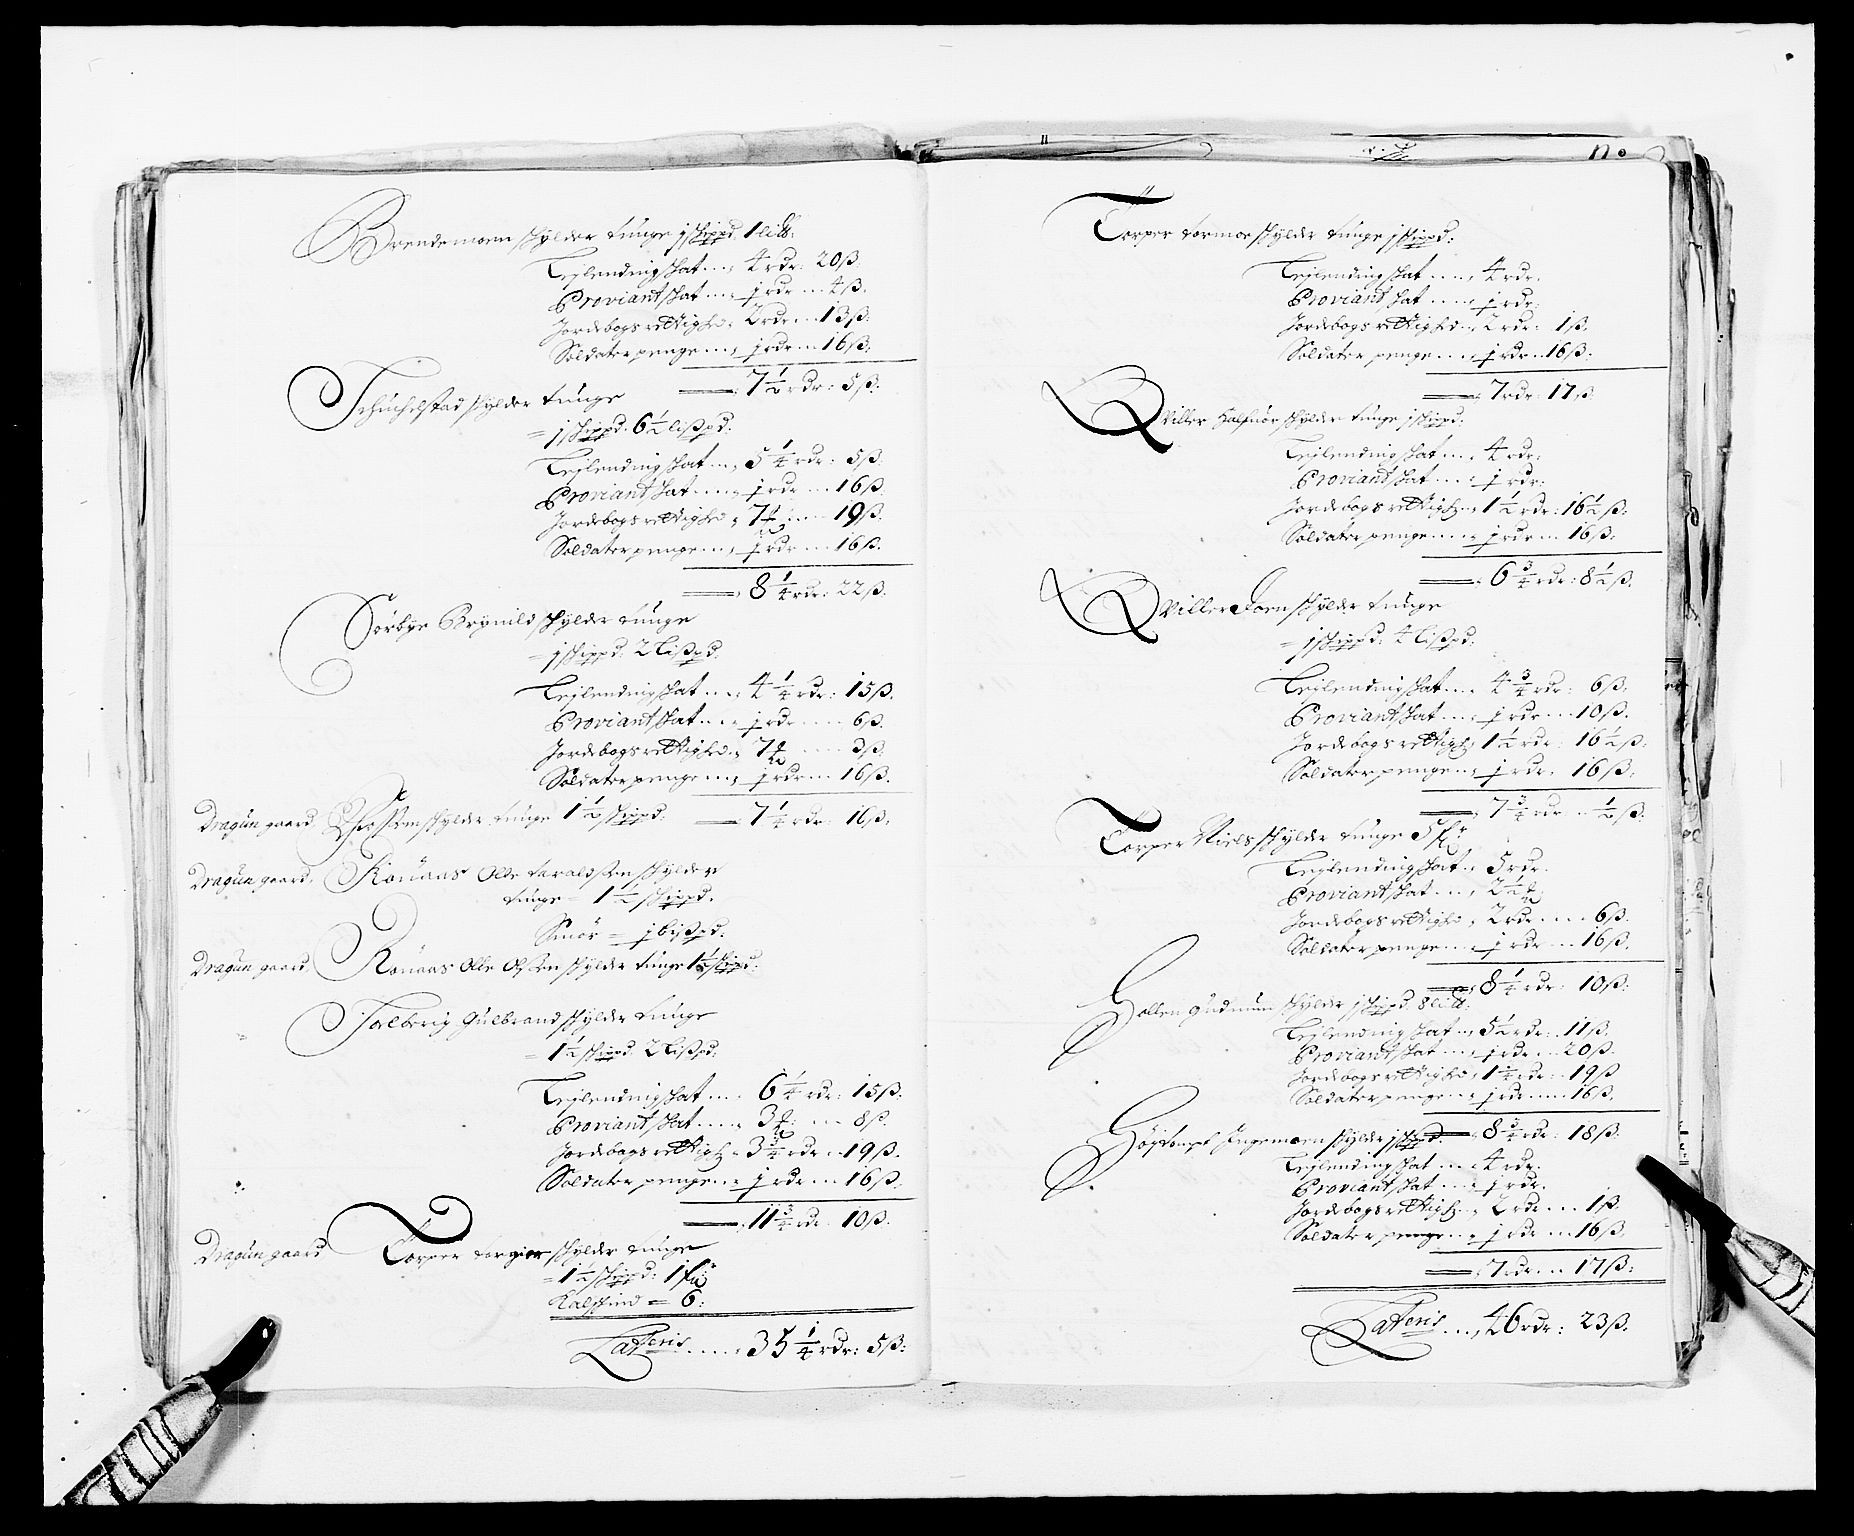 Brendemoen schylder tunge j schippd. 1 liß:
Lejlendingschat .... 4 rdr: 20 ß:
Proviantschat .... j rdr .... 4 ß.
Jordebogs rettighed „ 2 rdr .... 13 ß:
Soldaterpenge .... j rdr .... 16 ß:
7 1/2 rdr: 5 ß:
schylder tunge
= j schippd: 6 1/2 lißpd:
Lejlendingschat .... 5 1/4 rdr: 5 ß.
Proviantschat .... j rdr .... 16 ß.
Jordebogs rettighed „ 7 .... 19 ß.
Soldaterpenge .... j rdr .... 16 ß.
8 1/4 rdr: 22 ß.
Sörbye Brynild schylder tunge
= j schippd: 2 lißpd.
Lejlendingschat .... 4 1/4 rdr: 15 ß.
Proviantschat .... j rdr .... 6 ß.
Jordebogs rettighed „ 7 .... 3 ß.
Soldaterpenge .... j rdr .... 16 ß.
7 1/4 rdr: 16 ß.
Dragun gaard schylder tunge 1 1/2 schippd:
Dragun gaard. Rönaas Olle taraldssen schylder
tunge = 1 1/2 schippd.
Smör = j bißpd.
Dragun gaard. Rönaas Olle Olssen schylder tunge 1 1/2 schippd:
Gulbrand schylder tunge
= 1 1/2 schippd: 2 lißpd.
Lejlendingschat .... 6 1/4 rdr: 15 ß.
Proviantschat .... 3 .... 8 ß.
Jordebogs rettigh „ 3 3/4 rdr .. 19 ß.
Soldaterpenge .... j rdr .... 16 ß.
11 3/4 rdr: 10 ß.
Dragun gaard Torper torgier schylder tunge
= 1 1/2 schippd: 1
Kalfskind = 6:
Lateris .... 35 1/4 rdr: 5 ß:
No
Torper tormoe schylder tunge j schippd:
Lejlendingschat .... 4 rdr:
Proviantschat .... j rdr:
Jordebogs rettighed .. 2 rdr: 1 ß.
Soldater penge .... j rdr .. 16 ß:
7 rdr: 17 ß.
Qviller Halfuor schylder tunge j schippd:
Lejlendingschat .... 4 rdr:
Proviantschat .... j rdr:
Jordebogs rettigh „ 1 1/2 rdr: 16 1/2 ß:
Soldaterpenge .... j rdr .. 16 ß.
6 3/4 rdr: 8 1/2 ß.
Qviller Joen schylder tunge
= j schippd: 4 lißpd:
Lejlendingschat .... 4 3/4 rdr: 6 ß.
Proviantschat .... j rdr .... 10 ß.
Jordebogs rettigh „ 1 1/2 rdr: 16 1/2 ß:
Soldaterpenge .. j rdr: 16 ß.
7 3/4 rdr .. 1/2 ß.
Torper Niels schylder tunge 5
Lejlendingschat .. 5 rdr.
Proviantschat .... 2 1/2
Jordebogs rettighed „ 2 rdr .... 6 ß.
Soldaterpenge .... j rdr .... 16 ß.
8 1/4 rdr: 10 ß.
Gudmun schylder j schippd. 8 liß:
Lejlendingschat .. 5 1/2 rdr: 11 ß.
Proviantschat .... j rdr .. 20 ß.
Jordebogs rettighed „ 1 1/4 rdr: 19 ß
Soldaterpenge .. j rdr .... 16 ß.
8 3/4 rdr: 18 ß.
Ingemoen schylder j schippd.
Lejlendingschat .... 4 rdr.
Proviantschat .... j rdr.
Jordebogs rettigh „ 2 rdr .... 1 ß.
Soldater penge .. j rdr .. 16 ß.
7 rdr .... 17 ß:
Lateris .... 46 rdr: 23 ß.